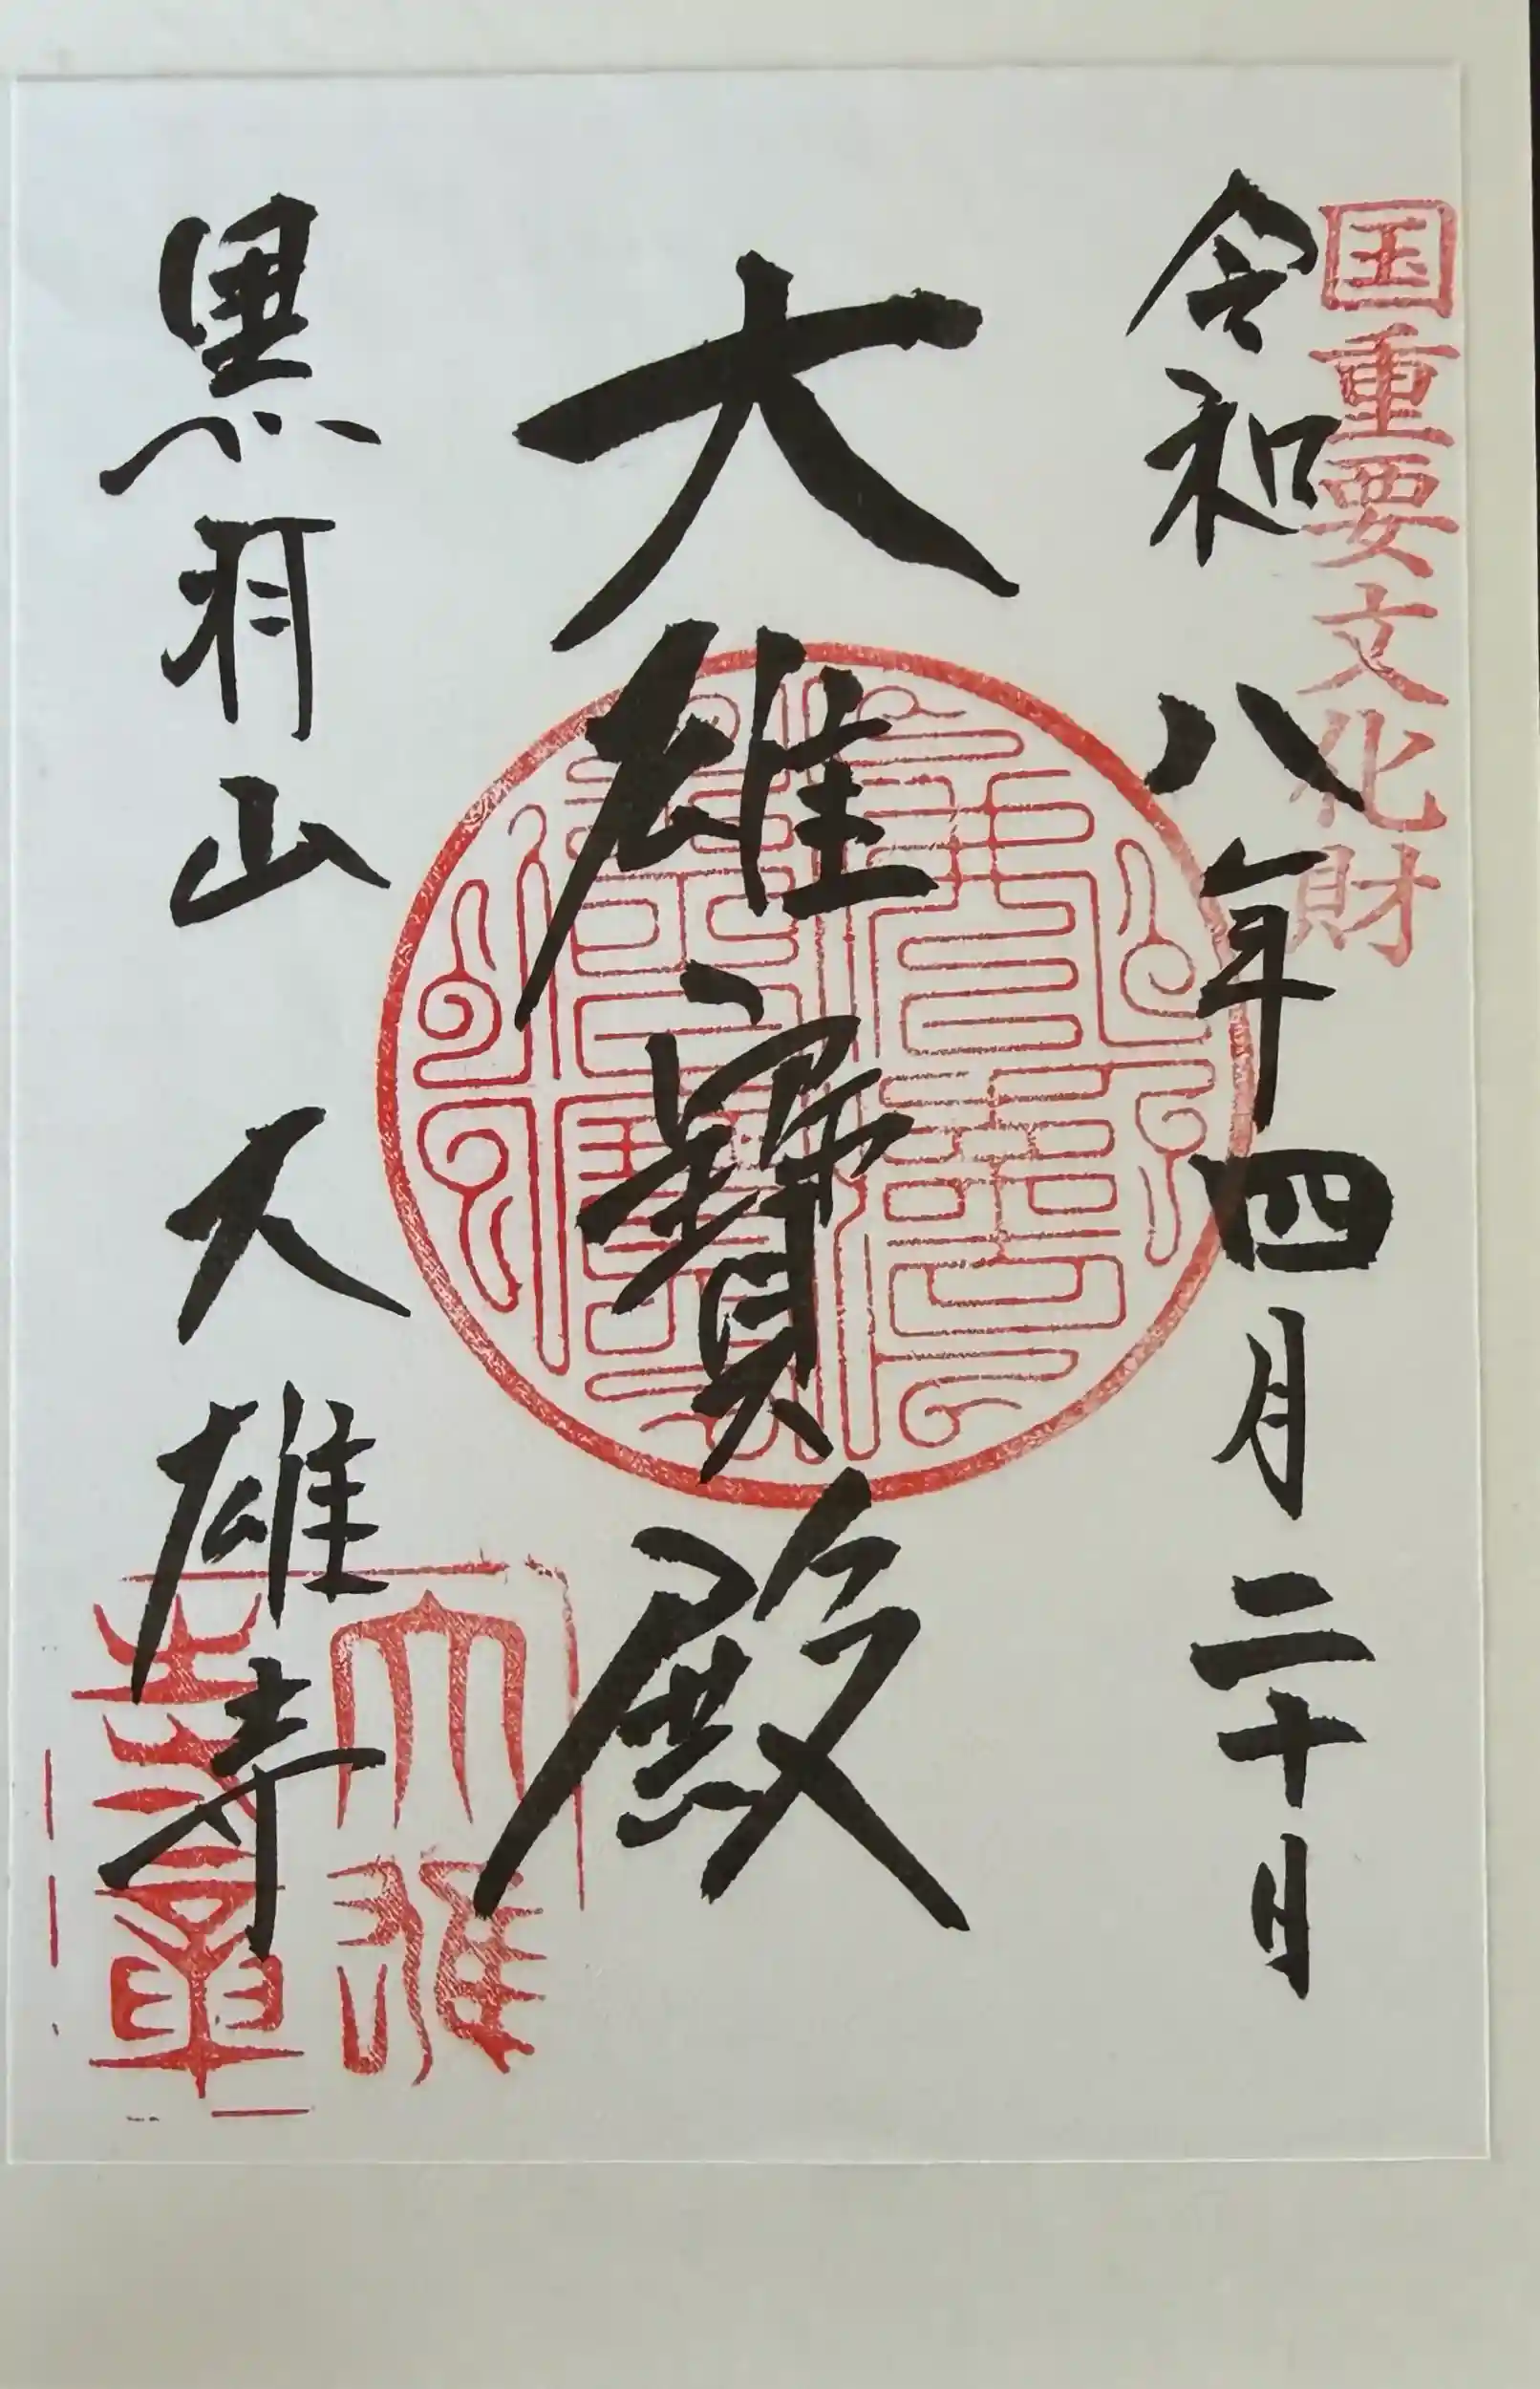 国重要文化財
令和八年四月二十日
大雄寳殿
黒羽山 大雄寺
大雄
寺章